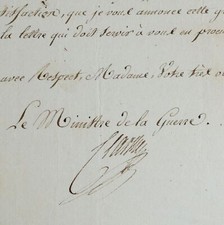 tisfaction, que je vous annonce cette
la lettre qui doit servir à vous en
avec Respect, Madame, Votre très
Le Ministre de la Guerre.